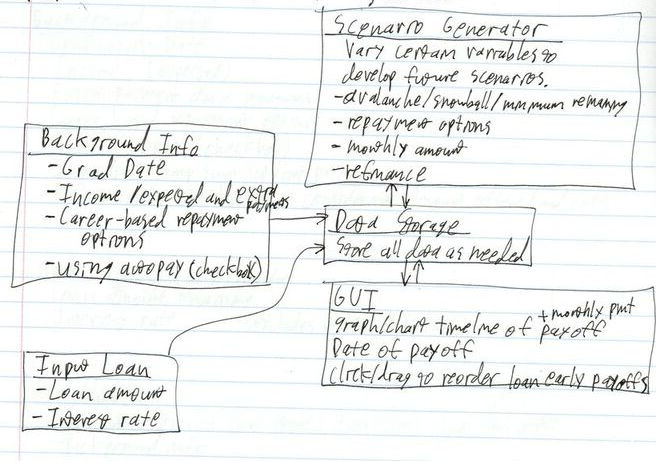 Scenario Generator
Vary certain variables to
develop future scenarios.
-avalanche/snowball/minimum remaining
-repayment options
-monthly amount
-refinance
Background Info
-Grad Date
-Income/expected and extra
payments
-Career-based repayment
options
-using autopay (checkbox)
Data Storage
Store all data as needed
GUI
+monthly pmt
graph/chart timeline of payoff
Date of payoff
Click/drag to reorder loan early payoffs
Input Loan
-Loan amount
-Interest rate